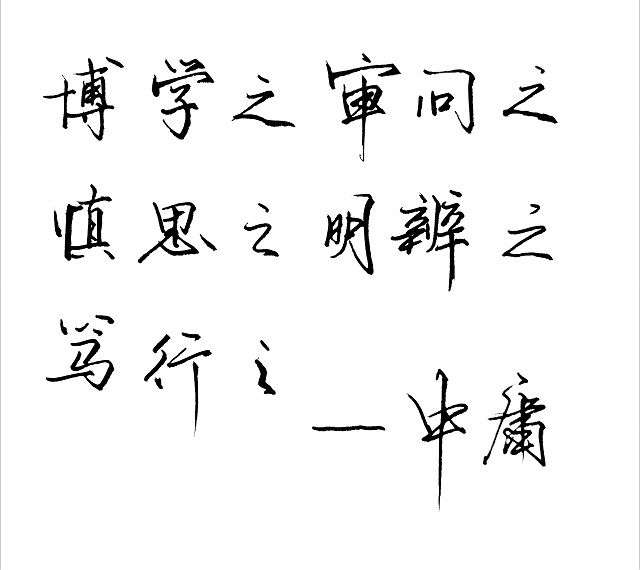 博学之审问之
慎思之明辨之
笃行之
—中庸